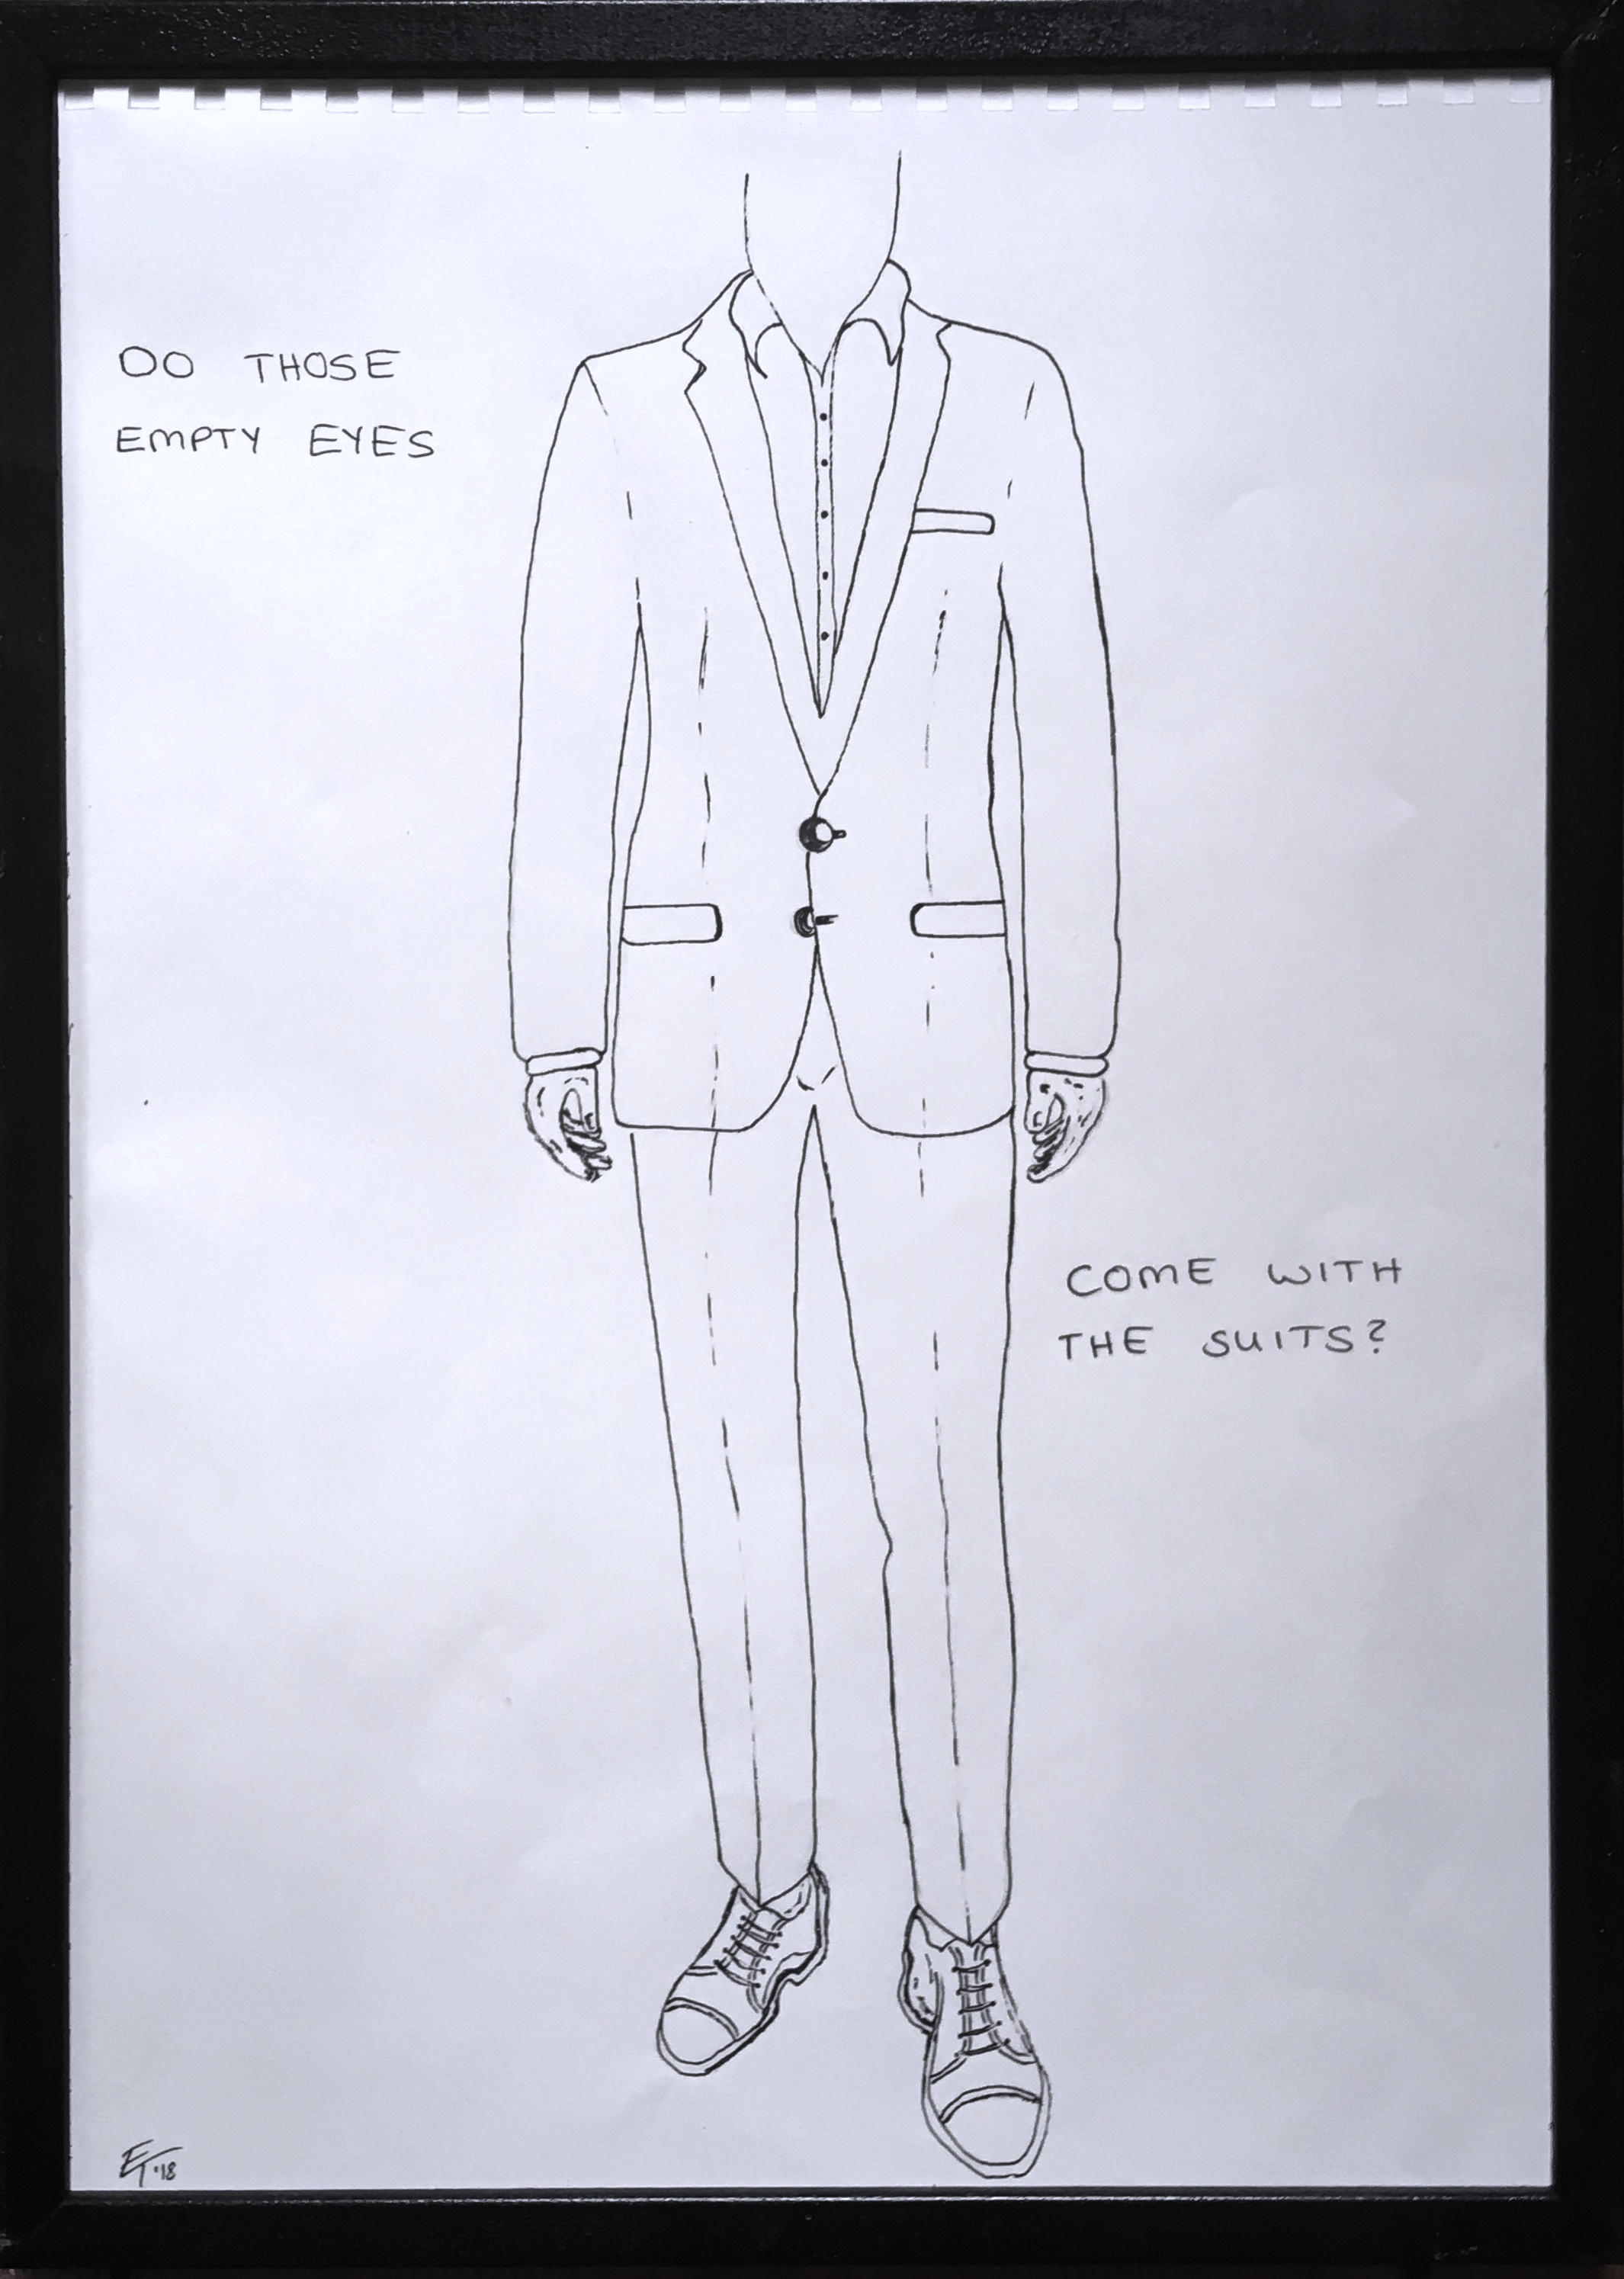 DO THOSE
EMPTY EYES
COME WITH
THE SUITS?
ET '18